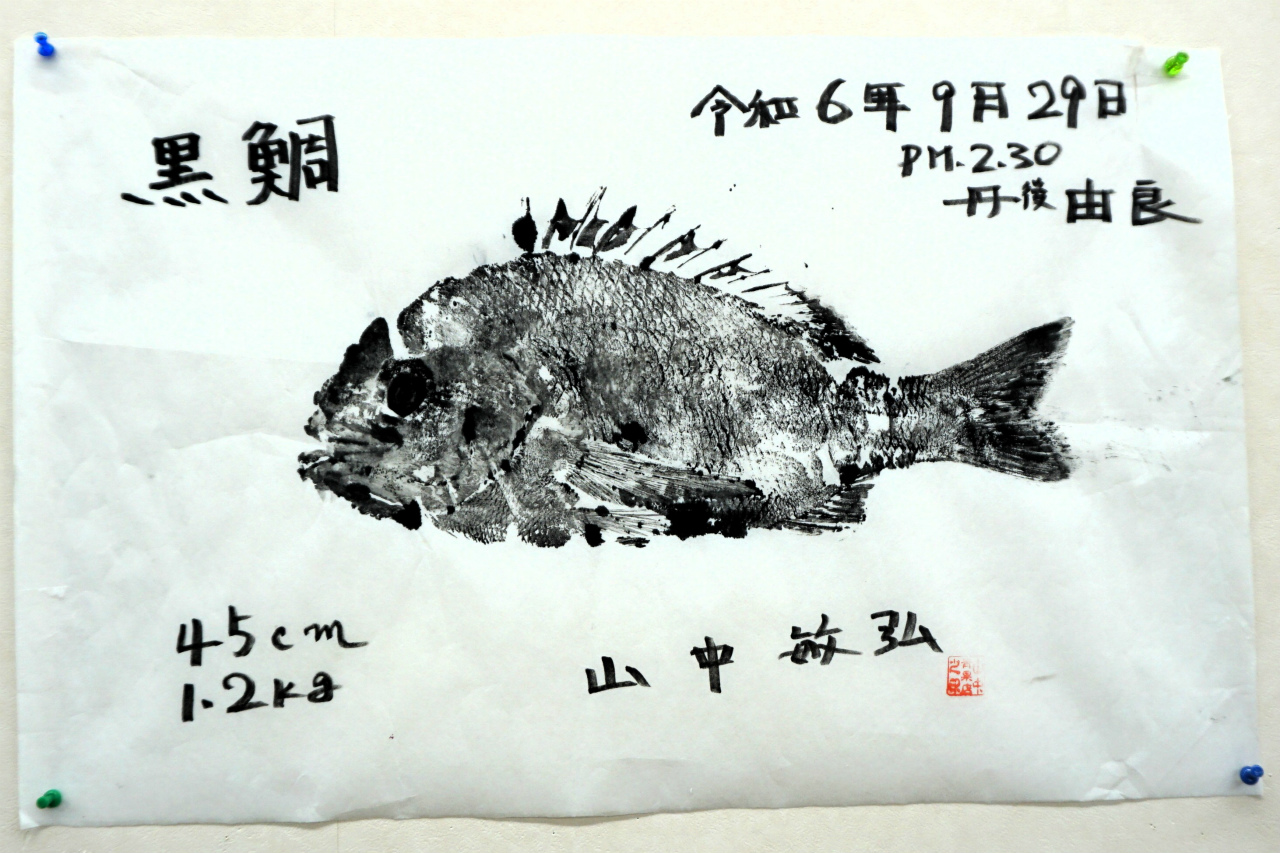 黒鯛
令和6年9月29日
PM.2.30
丹後由良
45cm
1.2kg
山中敏弘